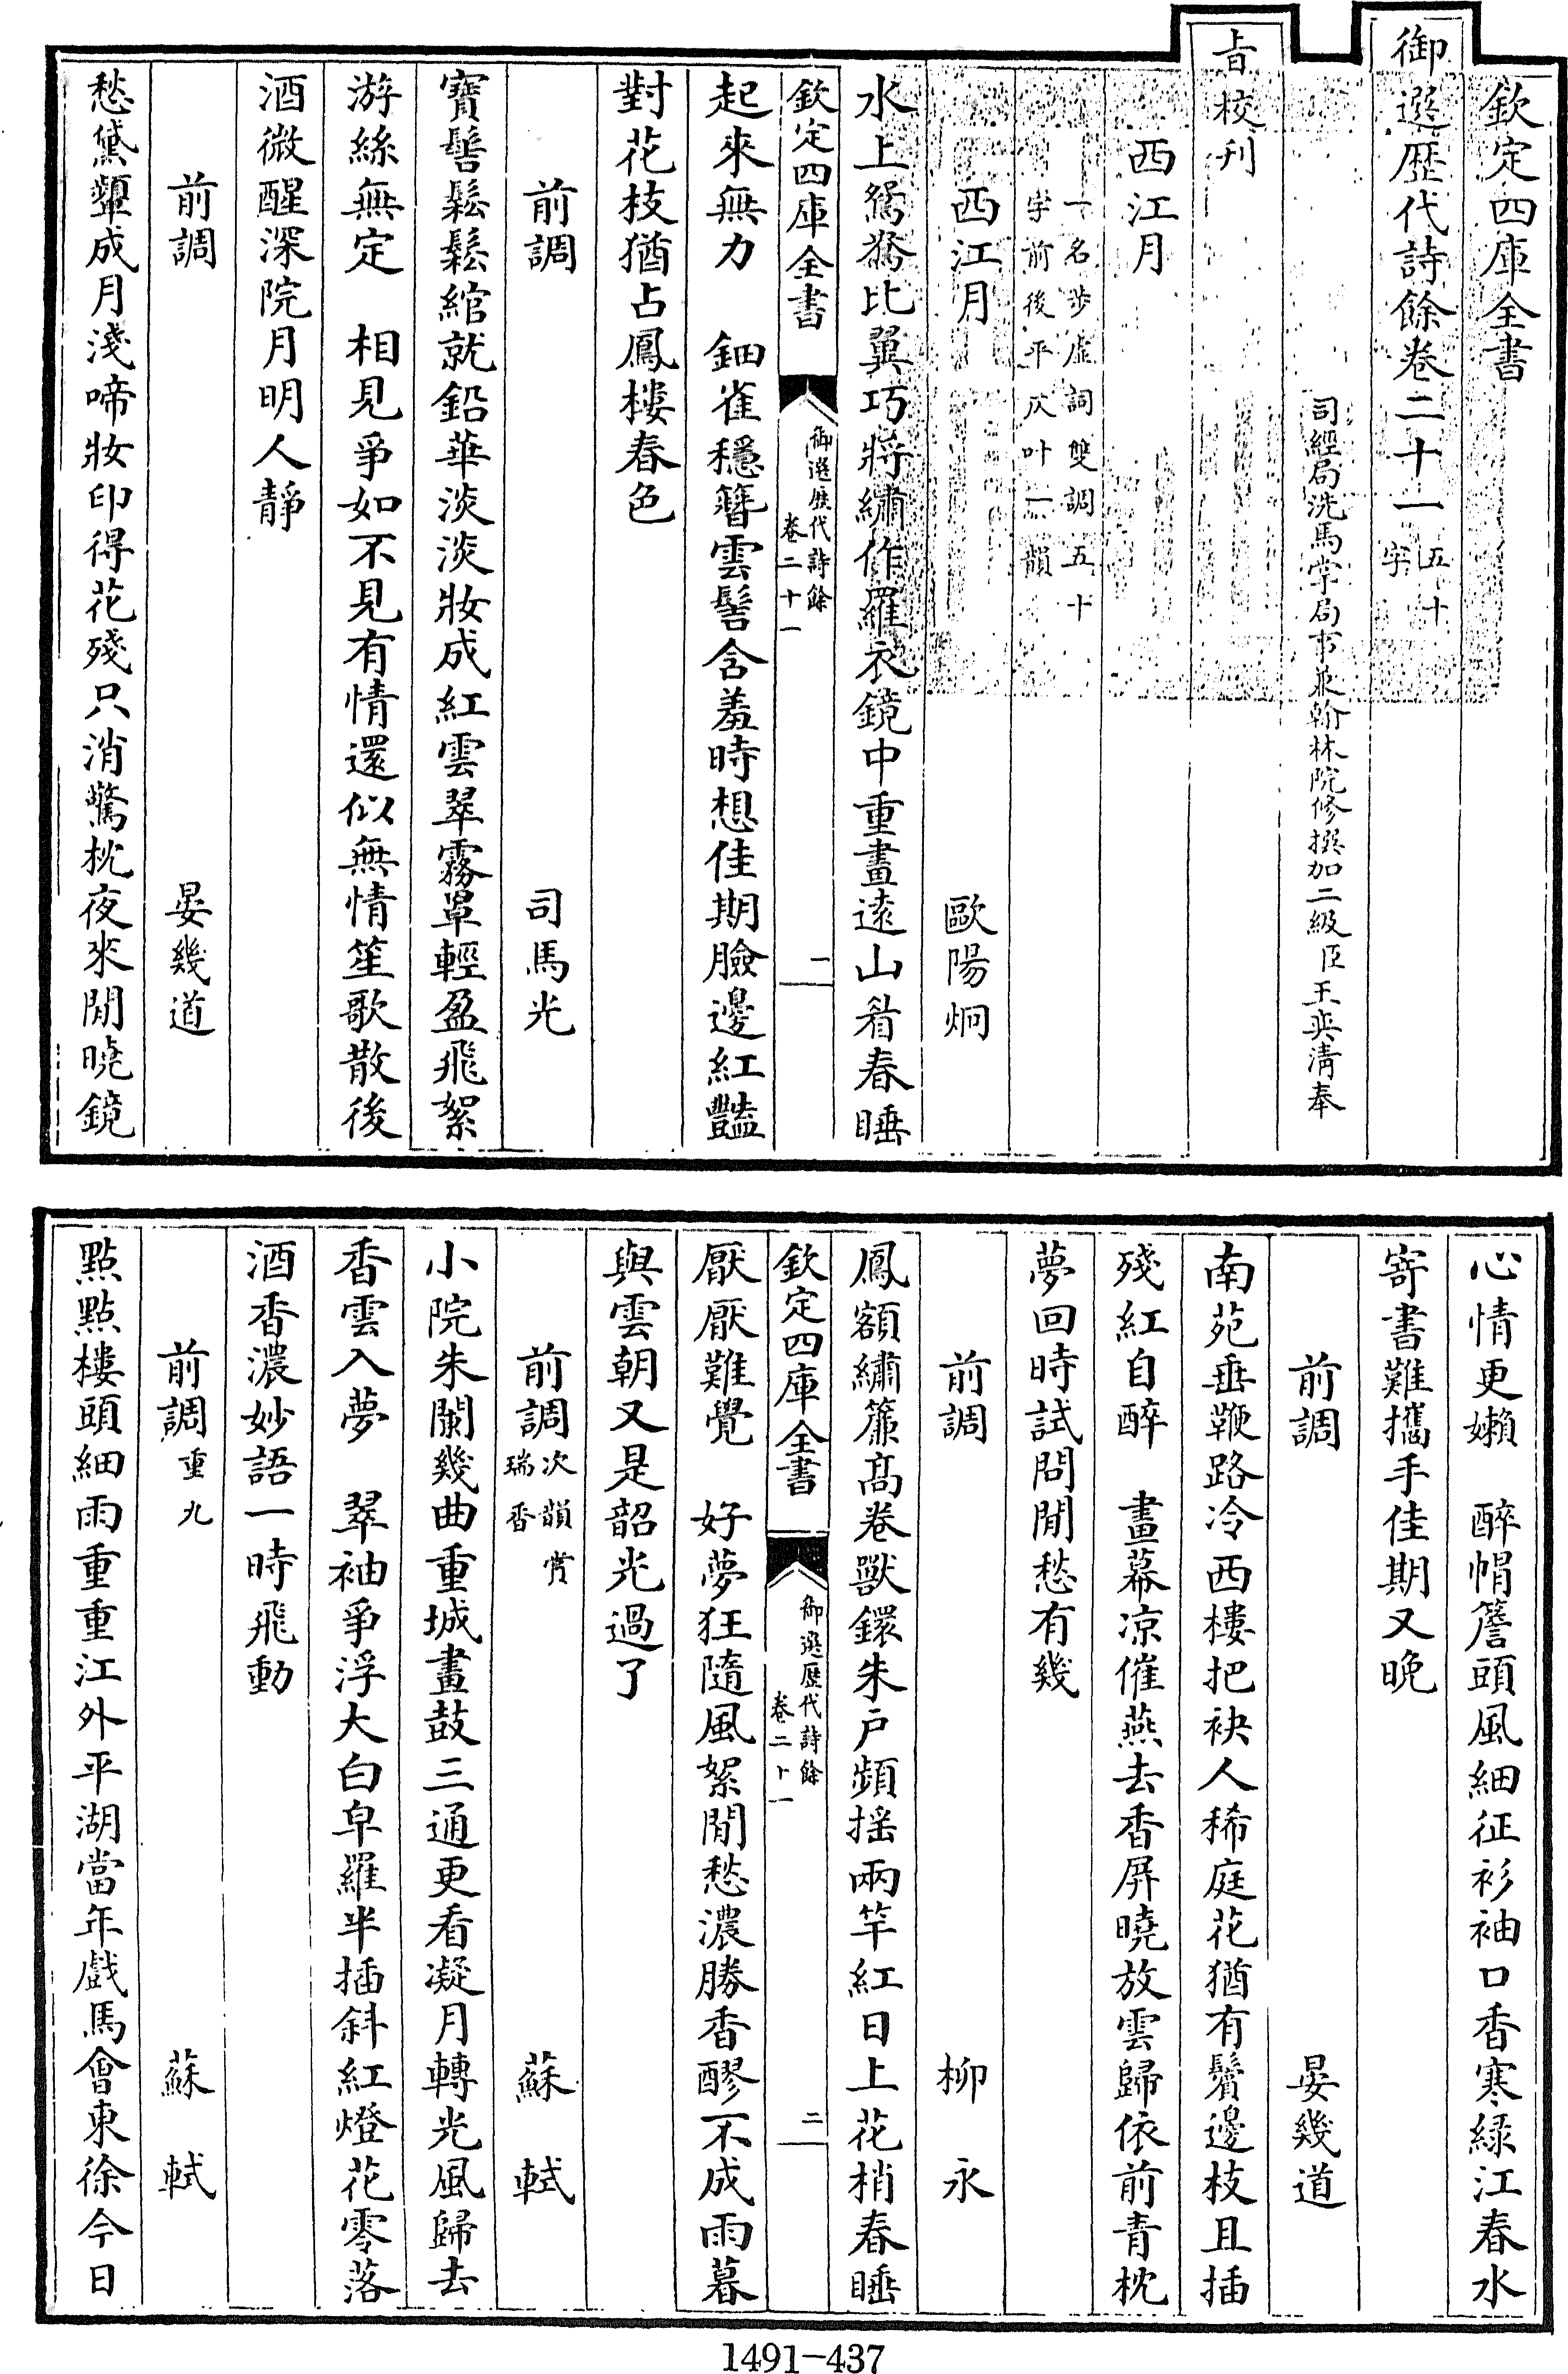 欽定四庫全書
御選歴代詩餘卷二十一五十字
司經局洗馬掌局事兼翰林院修撰加二級臣王奕清奉
旨校刊
西江月
一名步虛詞雙調五十
字前後平仄叶一韻
西江月　歐陽炯
水上鴛鴦比翼巧將繡作羅衣鏡中重畫遠山眉春睡
欽定四庫全書　御選歷代詩餘卷二十一　一
起來無力　鈿雀穩簪雲髻含羞時想佳期臉邊紅豔
對花枝猶占鳳樓春色
前調　司馬光
寶髻鬆鬆綰就鉛華淡淡妝成紅雲翠霧罩輕盈飛絮
游絲無定　相見爭如不見有情還似無情笙歌散後
酒微醒深院月明人靜
前調　晏幾道
愁黛顰成月淺啼妝印得花殘只消驚枕夜來閒曉鏡
心情更嬾　醉帽簷頭風細征衫袖口香寒綠江春水
寄書難攜手佳期又晚
前調　晏幾道
南苑垂鞭路冷西樓把袂人稀庭花猶有鬢邊枝且插
殘紅自醉　畫幕凉催燕去香屏曉放雲歸依前青枕
夢回時試問閒愁有幾
前調　柳永
鳳額繡簾髙卷獸鐶朱戶頻揺兩竿紅日上花梢春睡
欽定四庫全書　御選歷代詩餘卷二十一　二
厭厭難覺　好夢狂隨風絮閒愁濃勝香醪不成雨暮
與雲朝又是韶光過了
前調次韻賞瑞香　蘇軾
小院朱闌幾曲重城畫鼓三通更看凝月轉光風歸去
香雲入夢　翠袖爭浮大白皁羅半插斜紅燈花零落
酒香濃妙語一時飛動
前調重九　蘇軾
點點樓頭細雨重重江外平湖當年戲馬會東徐今日
1491-437